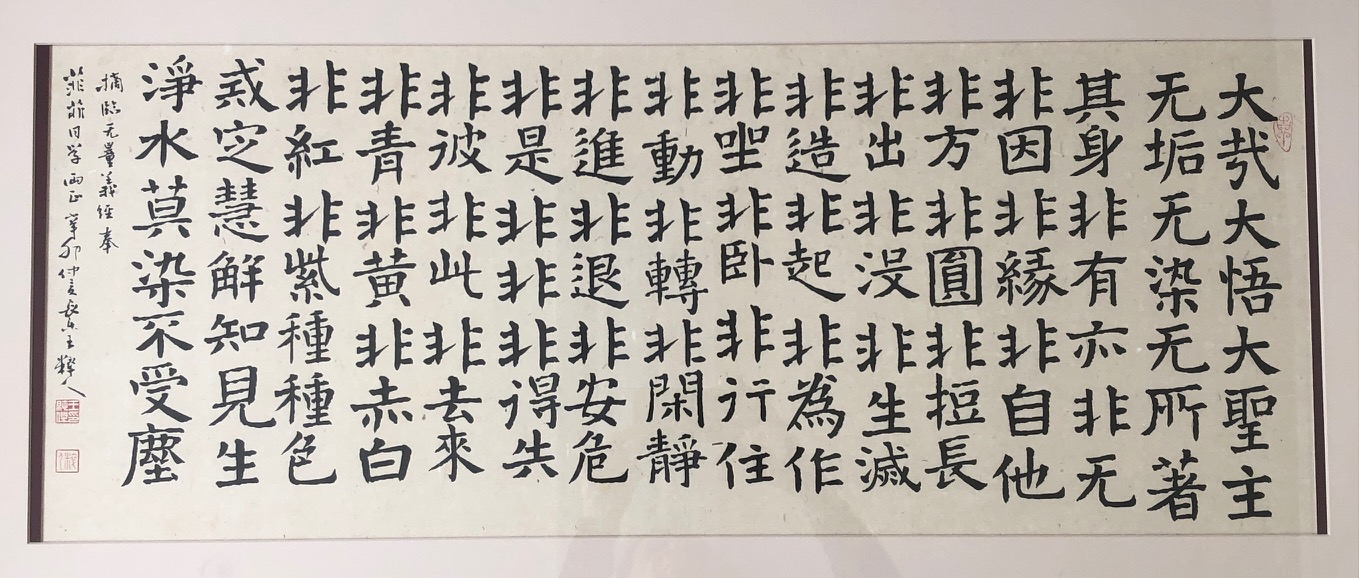 大哉大悟大聖主
无垢无染无所著
其身非有亦非无
非因非緣非自他
非方非圓非短長
非出非没非生滅
非造非起非為作
非坐非卧非行住
非動非轉非閑靜
非進非退非安危
非是非非非得失
非彼非此非去來
非青非黄非赤白
非紅非紫種種色
戒定慧解知見生
淨水莫染不受塵
摘臨无量義經奉
同学 正 辛卯仲夏 王 人